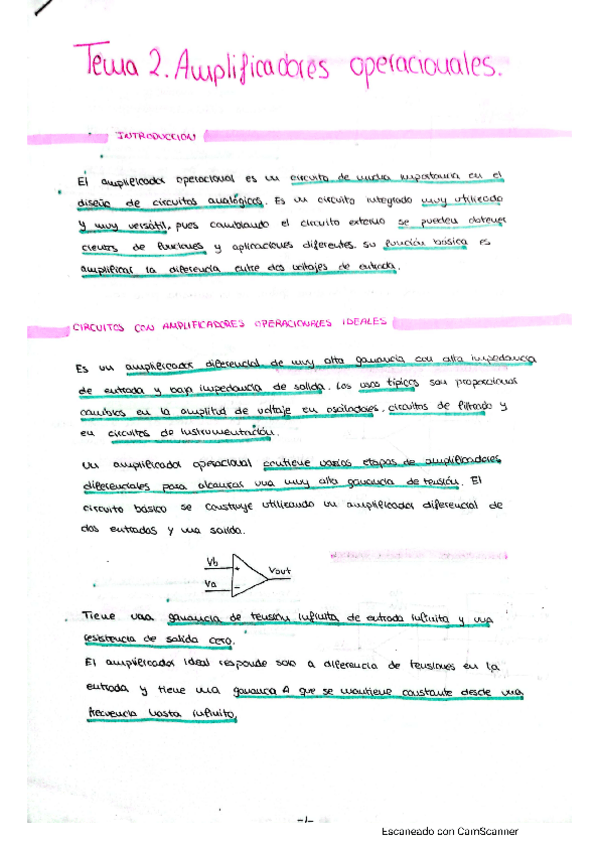 Tema 2. Amplificadores operacionales.
INTRODUCCION
El amplificador operacional es un circuito de mucha importancia en el
diseño de circuitos analógicos. Es un circuito integrado muy utilizado
y muy versátil, pues cambiando el circuito externo se pueden obtener
cientos de funciones y aplicaciones diferentes. su función básica es
amplificar la diferencia entre dos voltajes de entrada.
CIRCUITOS CON AMPLIFICADORES OPERACIONALES IDEALES
Es un amplificador diferencial de muy alta ganancia con alta impedancia
de entrada y baja impedancia de salida. Los usos típicos son proporcionar
cambios en la amplitud de voltaje en osciladores, circuitos de filtrado y
en circuitos de instrumentación.
Un amplificador operacional contiene varias etapas de amplificadores
diferenciales para alcanzar una muy alta ganancia de tensión. El
circuito básico se construye utilizando un amplificador diferencial de
dos entradas y una salida.
Vb
+
Vout
Va
-
Tiene una ganancia de tensión infinita de entrada infinita y una
resistencia de salida cero.
El amplificador ideal responde solo a diferencia de tensiones en la
entrada y tiene una ganancia A que se mantiene constante desde una
frecuencia hasta infinito.
-1-
Escaneado con CamScanner